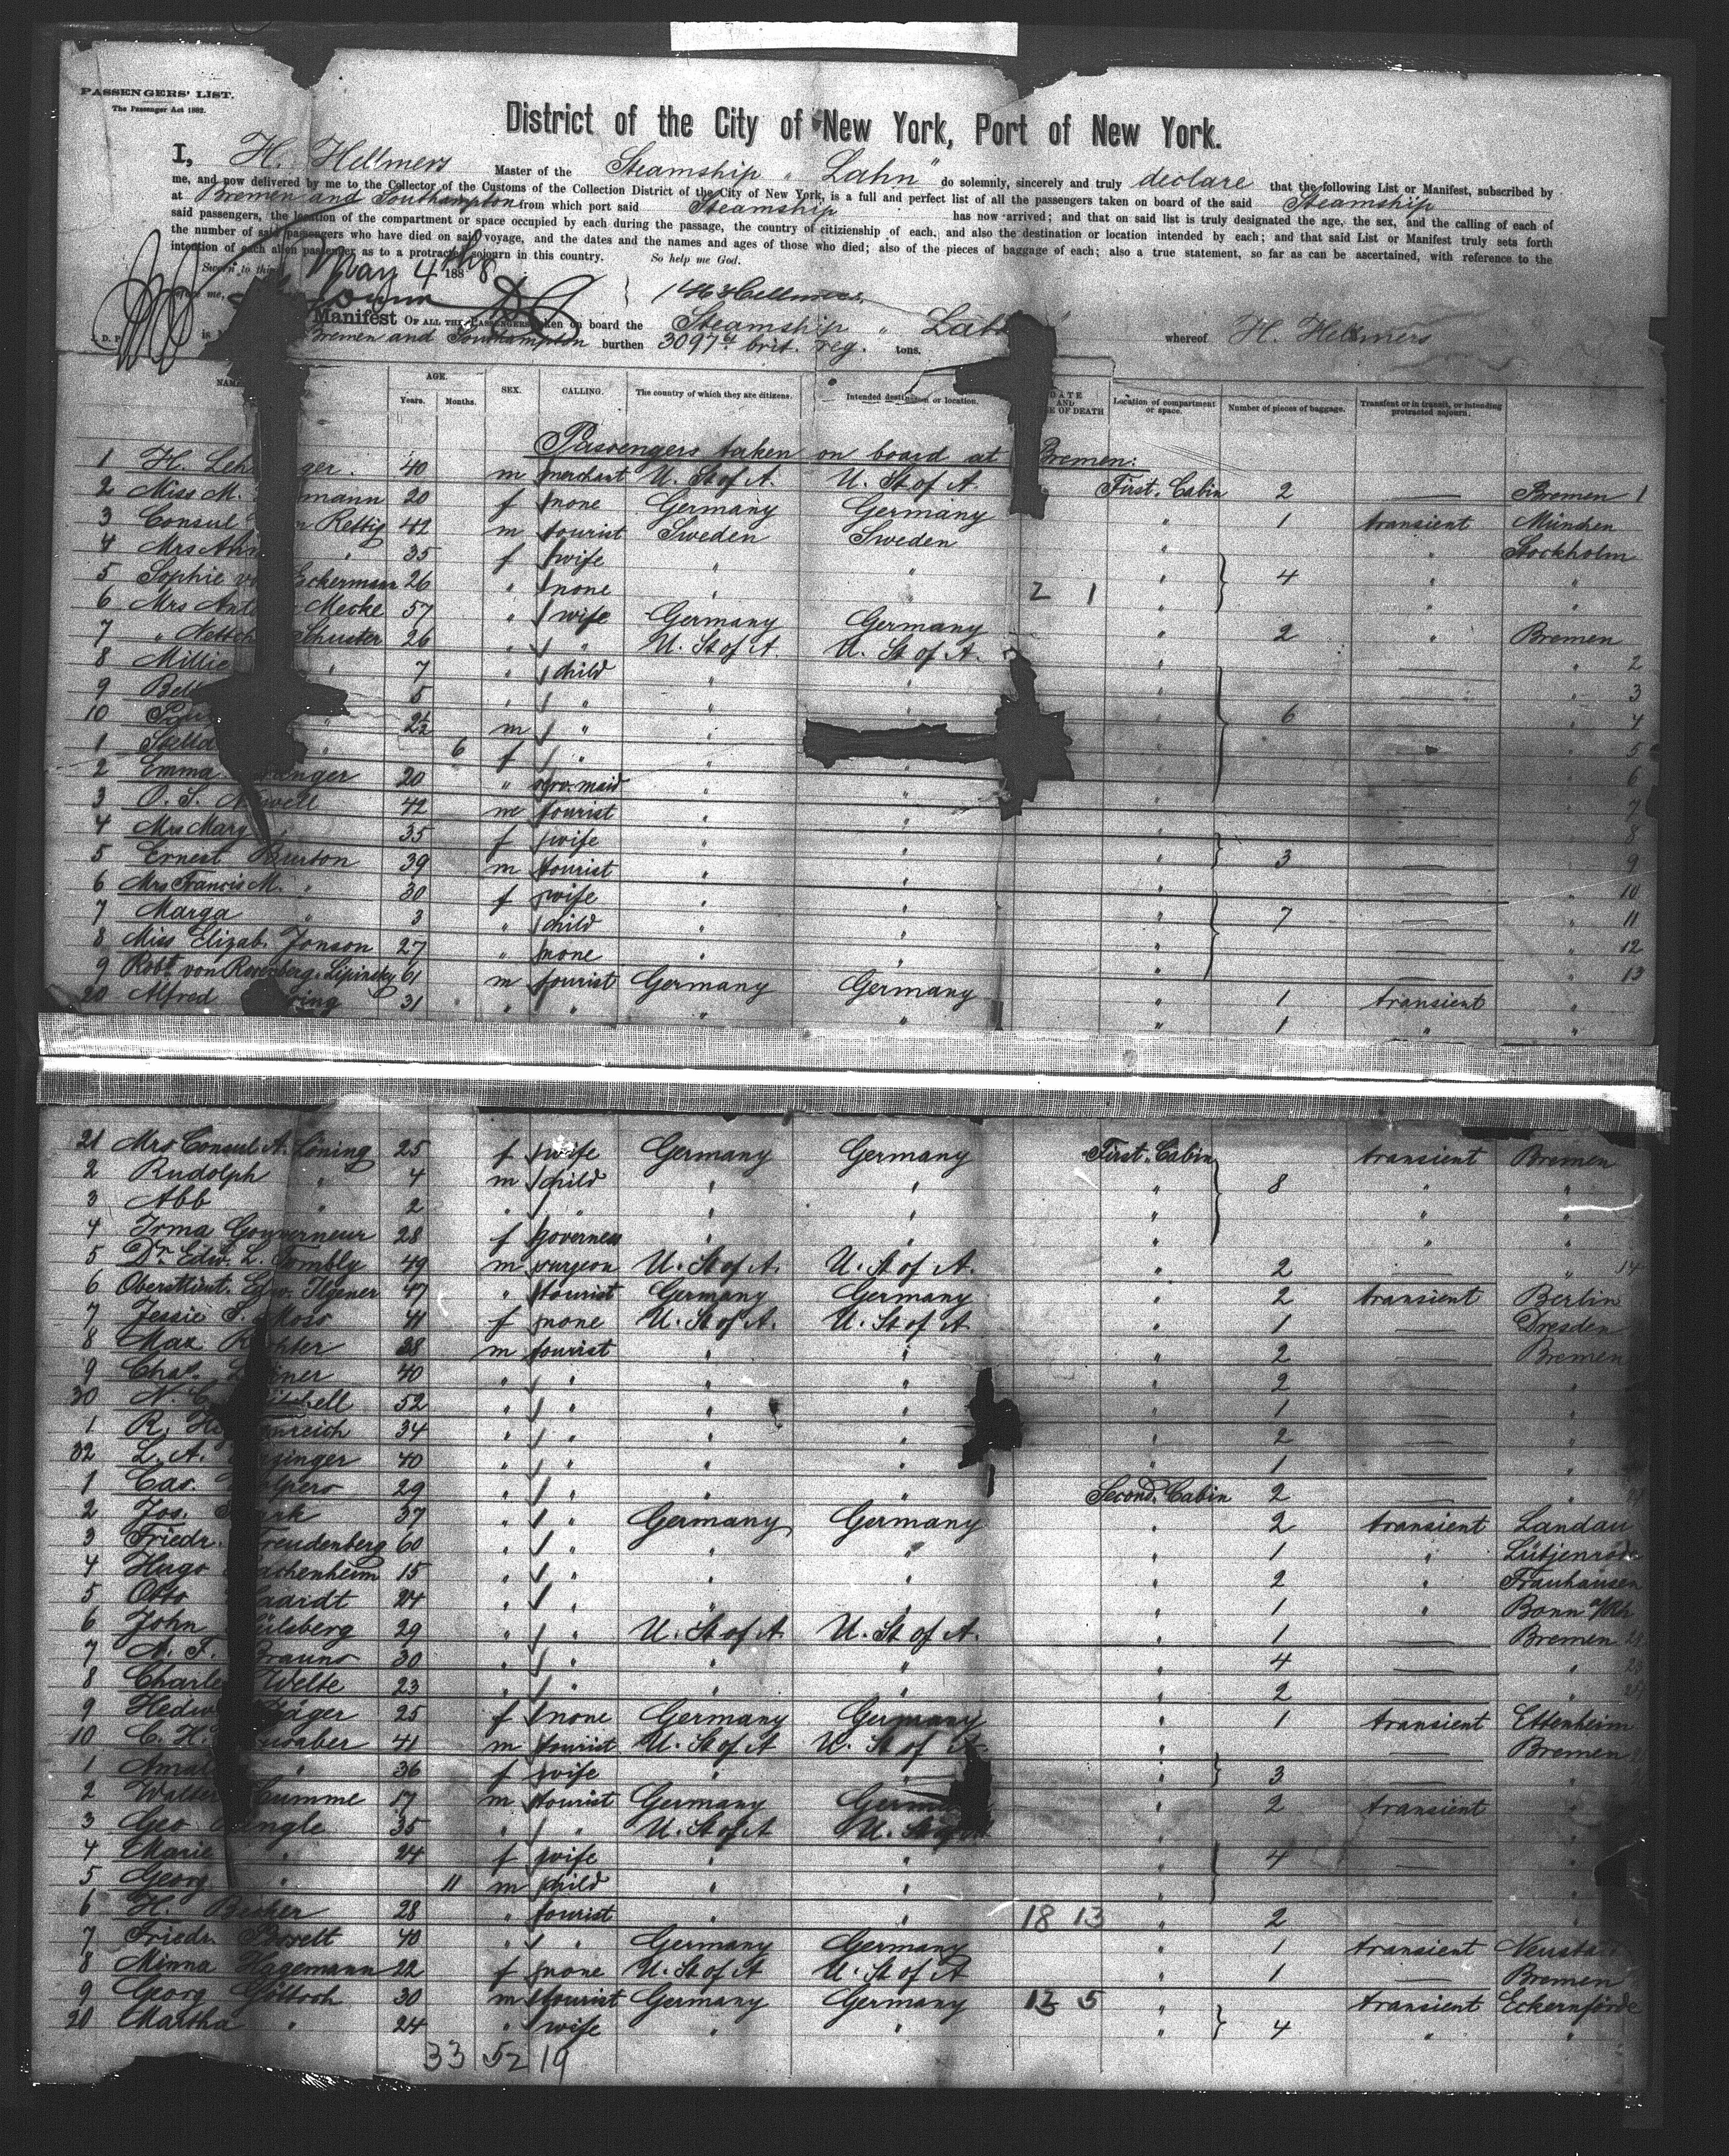 PASSENGERS' LIST.
The Passenger Act 1882.
District of the City of New York, Port of New York.
I, H. Hellmers Master of the Steamship "Lahn" do solemnly, sincerely and truly declare that the following List or Manifest, subscribed by
me, and now delivered by me to the Collector of the Customs of the Collection District of the City of New York, is a full and perfect list of all the passengers taken on board of the said Steamship
at Bremen and Southampton from which port said Steamship has now arrived; and that on said list is truly designated the age, the sex, and the calling of each of
said passengers, the location of the compartment or space occupied by each during the passage, the country of citizienship of each, and also the destination or location intended by each; and that said List or Manifest truly sets forth
the number of said passengers who have died on said voyage, and the dates and the names and ages of those who died; also of the pieces of baggage of each; also a true statement, so far as can be ascertained, with reference to the
intention of each alien passenger as to a protracted sojourn in this country. So help me God.
Sworn to this May 4 1888
before me, H Hellmers
Manifest OF ALL THE PASSENGERS taken on board the Steamship "Lahn" whereof H. Hellmers
is Bremen and Southampton burthen 3097 brit. reg. tons.
AGE. Years. Months. SEX. CALLING. The country of which they are citizens. Intended destination or location. DATE AND OF DEATH Location of compartment or space. Number of pieces of baggage. Transient or in transit, or intending protracted sojourn.
Passengers taken on board at Bremen:
1 H. Leh ger. 40 m merchant U. St of A. U. St of A. First Cabin 2 — Bremen 1
2 Miss M. mann 20 f none Germany Germany " 1 transient München
3 Consul Rettig 42 m tourist Sweden Sweden " " Stockholm
4 Mrs Ann " 35 f wife " " " 4 " "
5 Sophie von Eckerman 26 " none " " 2 1 " " "
6 Mrs Anto Mecke 57 " wife Germany Germany " 2 " Bremen
7 " Nettch Schuster 26 " " U. St of A. U. St of A. " — " 2
8 Millie " 7 " child " " " — " 3
9 Bell " 5 " " " " " 6 — " 4
10 " 2½ m " " " — " 5
1 Stella " 6 f " " " — " 6
2 Emma enger 20 " serv. maid " " " — " 7
3 O. S. Newell 42 m tourist " " " — " 8
4 Mrs Mary " 35 f wife " " " 3 — " 9
5 Ernest Burton 39 m tourist " " " — " 10
6 Mrs Francis M. " 30 f wife " " " 7 — " 11
7 Marga " 3 " child " " " — " 12
8 Miss Elizab. Jonson 27 " none " " " — " 13
9 Robt von Rosenberg-Lipinsky 61 m tourist Germany Germany " 1 transient "
20 Alfred ring 31 " " " " " 1 " "
21 Mrs Consul A. Löning 25 f wife Germany Germany First Cabin transient Bremen
2 Rudolph " 4 m child " " " 8 " "
3 Abb " 2 " " " " " " "
4 Irma Gouverneur 28 f governess " " " " "
5 Dr. Edw. L. Tombly 49 m surgeon U. St of A. U. St of A. " 2 — " 14
6 Oberstlieut. Edw. Ilgener 47 " tourist Germany Germany " 2 transient Berlin
7 Jessie S. Moss 41 f none U. St of A. U. St of A. " 1 — Dresden
8 Max Richter 38 m tourist " " " 2 — Bremen
9 Chas. L iner 40 " " " " " 2 — "
30 N. C. itchell 52 " " " " " 1 — "
1 R. He nreich 34 " " " " " 2 — "
32 L. A. singer 40 " " " " " 1 — "
1 Cas. olpers 29 " " " " Second Cabin 2 — "
2 Jos. ark 37 " " Germany Germany " 2 transient Landau
3 Friedr. Freudenberg 60 " " " " " 1 " Lütjenrode
4 Hugo achenheim 15 " " " " " 2 " Frauhausen
5 Otto aardt 24 " " " " " 1 " Bonn a/Rh
6 John ülsberg 29 " " U. St of A. U. St of A. " 1 — Bremen
7 A. F. Brauns 30 " " " " " 4 — "
8 Charles Welte 23 " " " " " 2 — "
9 Hedw Jäger 25 f none Germany Germany " 1 transient Ettenheim
10 C. H. aber 41 m tourist U. St of A U. St of A " — Bremen
1 Amal " 36 f wife " " " 3 — "
2 Walter Summe 17 m tourist Germany Germany " 2 transient "
3 Geo. engle 35 " " U. St of A U. St of A —
4 Marie " 24 f wife " " " 4 — "
5 Georg " 11 m child " " " — "
6 H. Becker 28 " tourist " " 18 13 " 2 — "
7 Friedr. Borelt 40 " " Germany Germany " 1 transient Neustadt
8 Minna Hagemann 22 f none U. St of A U. St of A " 1 — Bremen
9 Georg Göttsch 30 m tourist Germany Germany 12 5 " transient Eckernförde
20 Martha " 24 " wife " " " 4 " "
33 52 19